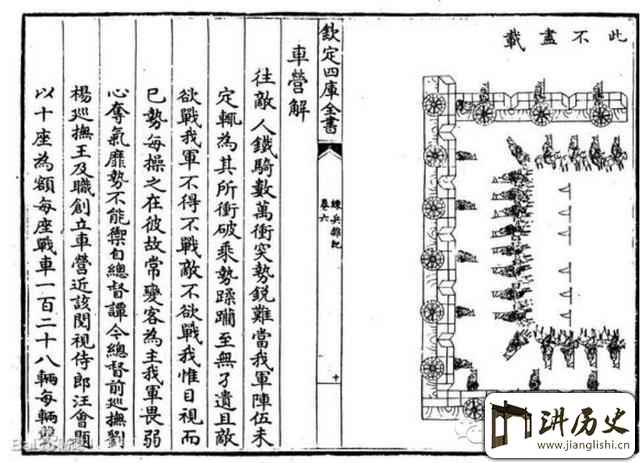 此不盡載
欽定四庫全書
練兵雜紀
卷六
十
車營解
往敵人鐵騎數萬衝突勢銳難當我軍陣伍未
定輒為其所衝破乘勢蹂躪至無孑遺且敵
欲戰我軍不得不戰敵不欲戰我惟目視而
已勢每操之在彼故常變客為主我軍畏弱
心奪氣靡勢不能禦自總督譚今總督前巡撫劉
楊巡撫王及職創立車營近該閱視侍郎汪會題
以十座為額每座戰車一百二十八輛每輛
讲历史
www.jianglishi.cn